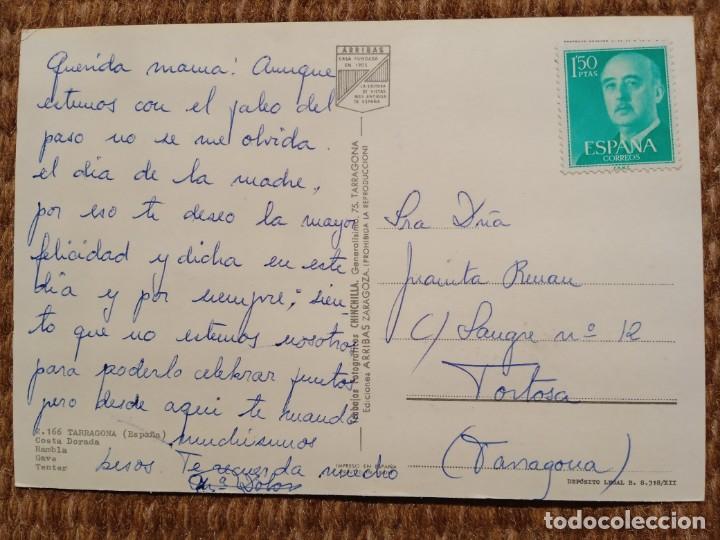 Querida mama: Aunque
estemos con el jaleo del
paso no se me olvida
el dia de la madre,
por eso te deseo la mayor
felicidad y dicha en este
dia y por siempre; sien-
to que no estemos nosotros
para poderlo celebrar juntos,
pero desde aqui te mando
muchisimos
besos Te recuerda mucho
Mª Dolores
E. 166 TARRAGONA (España)
Costa Dorada
Rambla
Gave
Tenter
ARRIBAS
CASA FUNDADA
EN
LA EDITORA
DE VISTAS
MAS ANTIGUA
DE ESPAÑA
Trabajos Fotográficos CHINCHILLA. Generalísimo, 75. TARRAGONA
Ediciones ARRIBAS ZARAGOZA. (PROHIBIDA LA REPRODUCCION)
IMPRESO EN ESPAÑA
1'50
PTAS
ESPAÑA
CORREOS
Sra Dña
Juanita
C/ Sangre nº 12
Tortosa
(Tarragona)
DEPÓSITO LEGAL B. 8.318/XII
todocoleccion.net